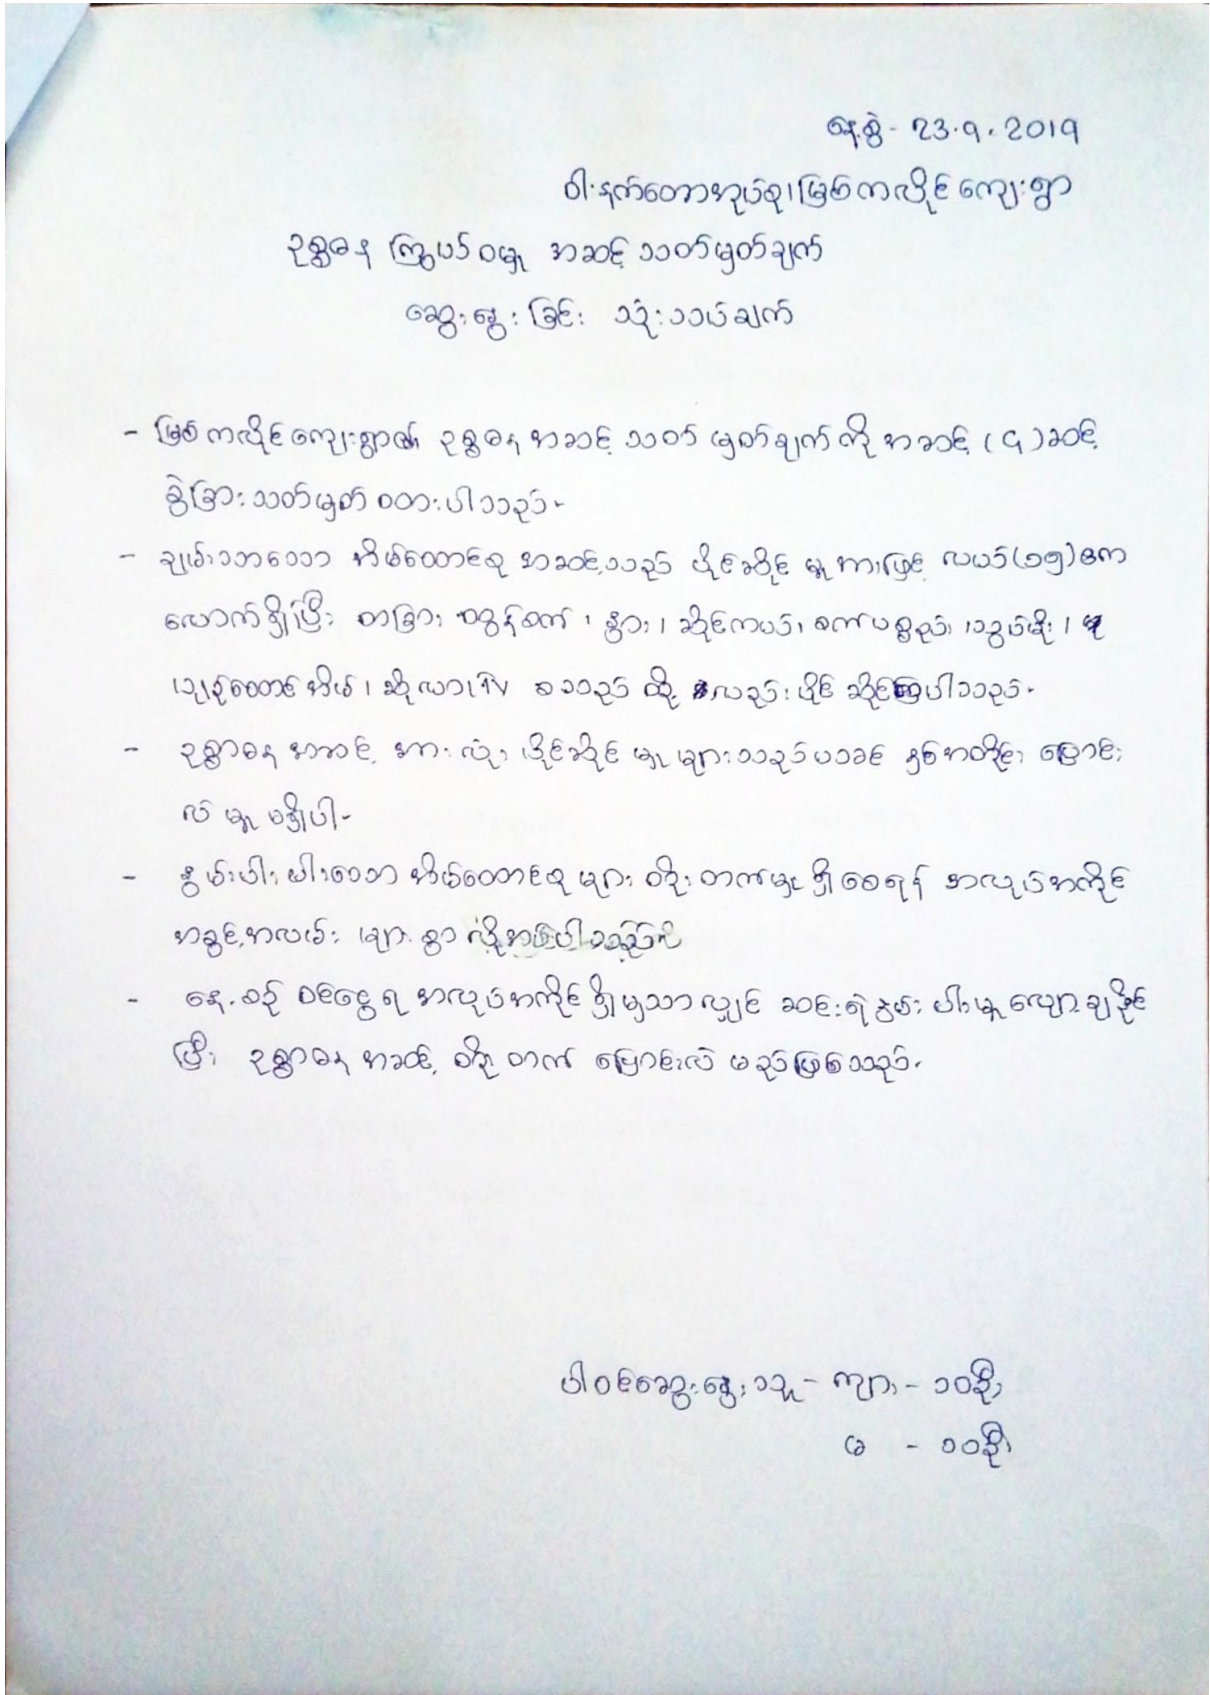 နေ့စွဲ - 23.9.2019
ဝါးနက်တောအုပ်စု၊ မြစ်ကလိုင် ကျေးရွာ
ဥစ္စဓန ကြွယ်ဝမှု အဆင့် သတ်မှတ်ချက်
ဆွေးနွေးခြင်း သုံးသပ်ချက်
- မြစ်ကလိုင်ကျေးရွာ၏ ဥစ္စဓန အဆင့် သတ်မှတ်ချက်ကို အဆင့် (၄) ဆင့်
ခွဲခြားသတ်မှတ် ထားပါသည်-
- ချမ်းသာသော အိမ်ထောင်စု အဆင့်သည် ပိုင်ဆိုင်မှုအားဖြင့် လယ်(၁၅)ဧက
လောက်ရှိပြီး တခြား ထွန်စက်၊ နွား၊ ဆိုင်ကယ်၊ စက်ပစ္စည်း၊ သွပ်မိုး၊
ပျဉ်ထောင်အိမ်၊ ဆိုလာ၊ TV စသည် တို့ လည်း ပိုင်ဆိုင်ကြပါသည်-
- ဥစ္စာဓန အဆင့် အားလုံး ပိုင်ဆိုင်မှု များသည် ယခင် နှစ်အတိုင်း ပြောင်း
လဲ မှု မရှိပါ-
- နွမ်းပါး သော အိမ်ထောင်စု များ တိုးတက်မှု ရှိစေရန် အလုပ်အကိုင်
အခွင့်အလမ်း များစွာ လိုအပ်ပါသည်။
- နေ့စဉ် ဝင်ငွေရ အလုပ်အကိုင် ရှိမှသာလျှင် ဆင်းရဲနွမ်းပါးမှု လျော့ချနိုင်
ပြီး ဥစ္စာဓန အဆင့် တိုးတက် ပြောင်းလဲ မည်ဖြစ်သည်-
ပါဝင်ဆွေးနွေးသူ - ကျား - ၁၀ဦး
မ - ၁၀ဦး